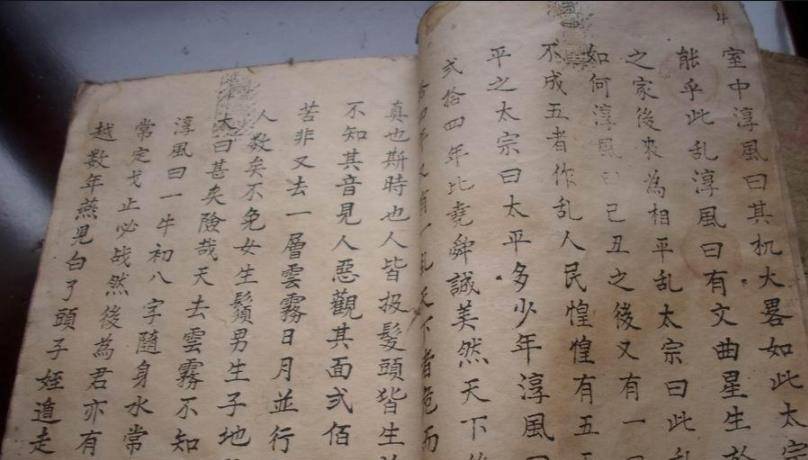 室中淳風曰其机大畧如此太宗
能乎此乱淳風曰有文曲星生於
之家後来為相平乱太宗曰此乱
如何淳風曰己丑之後又有一
不成五者作乱人民惶惶有五
平之太宗曰太平多少年淳風
弍拾四年比堯舜誠美然天下後
又有一乱天下者危而
真也斯時也人皆扱髮頭皆生
不知其音見人惡觀其面弍佰
苦非又去一層雲霧日月並行
人数矣不免女生鬚男生子地
太曰甚矣險哉天去雲霧不知
淳風曰一牛初八字随身水常
常定戈止必战然後為君亦有
越数年燕児白了頭子姪遁走